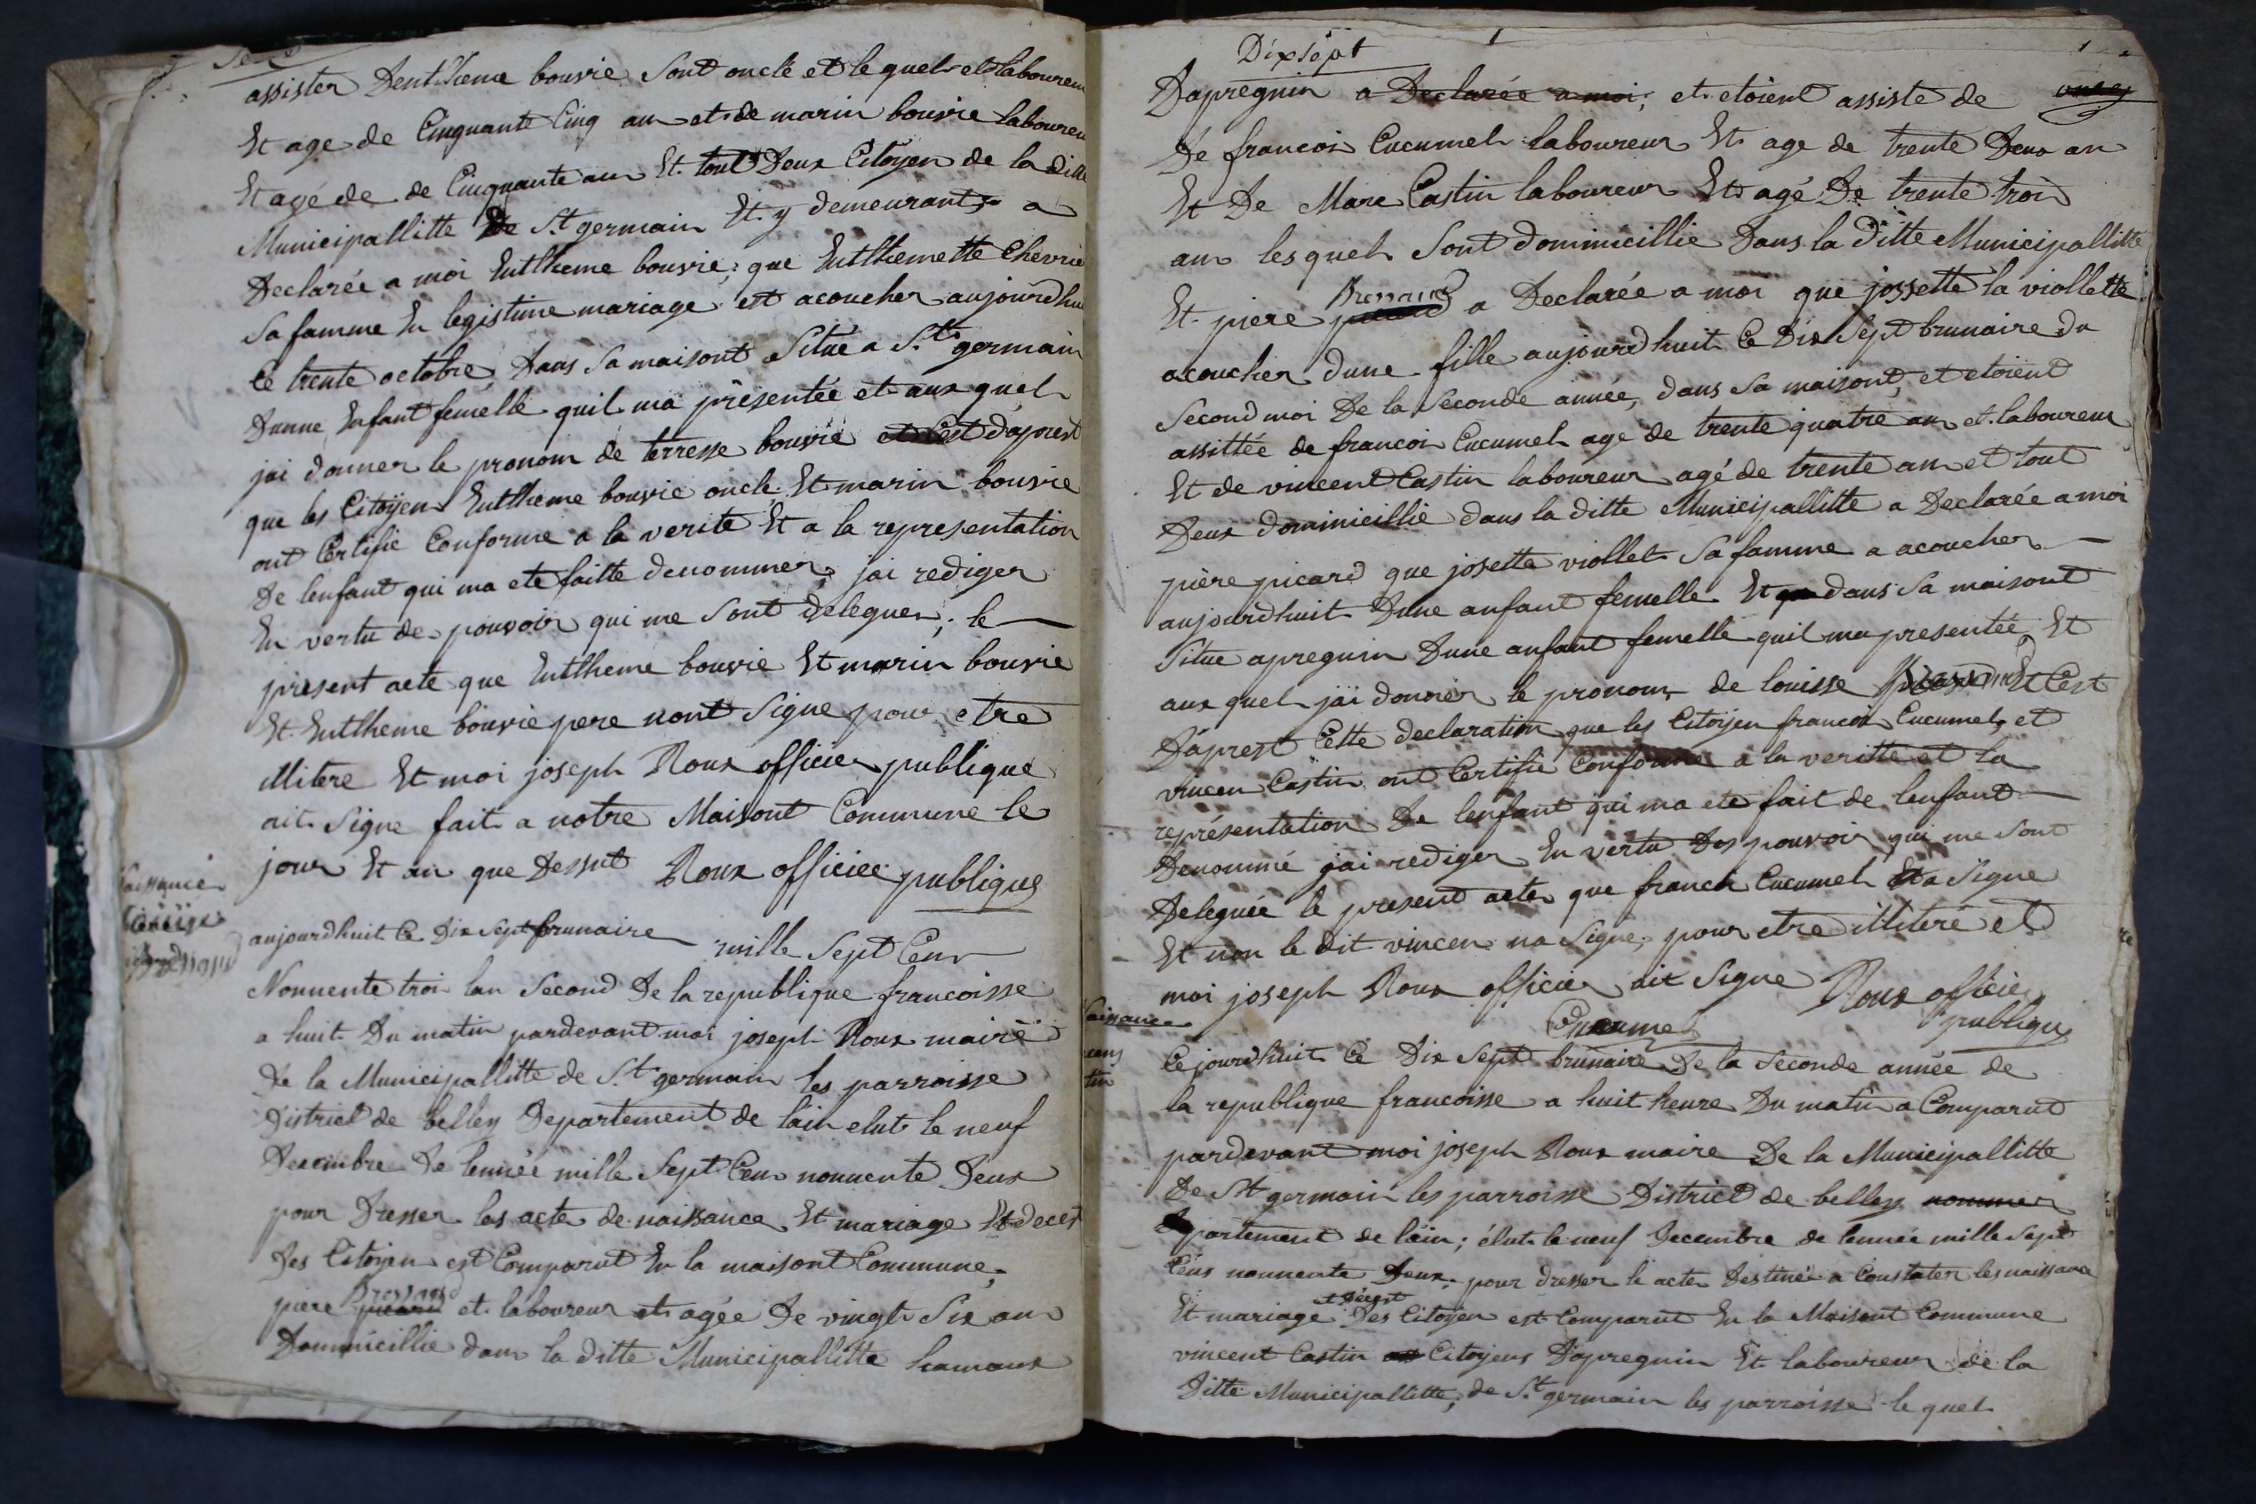 assister Dentheme bouvie Sont oncle et le quel et laboureur
Et age de Cinquante Cinq an et de marin bouvie laboureur
Et agé de de Cinquante an Et tout Deux Citoyen de la ditte
Municipallitte De St germain Et y demeurant a
Declarée a moi Entheme bouvie, que Enthemette Chevrie
Sa famme En legistime mariage est acoucher aujourdhui
Ce trente octobre, Dans Sa maisont Situe a St germain
Dunne Enfant femelle quil ma présentée et aux quel
jai donner le pronom de terresse bouvie et Cest daprest
que les Citoÿen Entheme bouvie oncle Et marin bouvie
ont Certifie Conforme a la verite Et a la representation
De lenfant qui ma ete faitte denommer jai rediger
En vertu de pouvoir qui me Sont deleguer, le
présent acte que Entheme bouvie Et marin bouvie
Et Entheme bouvie pere nont Signe pour etre
illitere Et moi joseph Roux officier publique
ait Signe fait a notre Maisont Commune le
jour Et an que Dessut Roux officiee publique
Naissance
aujourdhuit Ce Dix Sept brunaire mille Sept Cent
Nonnente troi lan Second De la republique francoisse
a huit Du matin pardevant moi joseph Roux maire
De la Municipallitte de St germain les parroisse
District de belley Departement de lain elut le neuf
Decembre De lennée mille Sept Cen nonnente Deux
pour Dresser les acte de naissance Et mariage Et decest
Des Citoyen est Comparut En la maisont Commune,
piere picard et laboureur et agée De vingt Six an
Dommicillie dans la ditte Municipallitte hamaux
Dixsept
Dapregnin a Declarée a moi, et etoient assiste de
De francois Cucumel laboureur Et age de trente Deux an
Et De Marc Castin laboureur Et agé De trente troi
an les quel Sont dominicillie Dans la Ditte Municipallitte
Et piere picard a Declarée a moi que jossette la viollette
acoucher dune fille aujourdhuit Ce Dix Sept brunaire du
Second moi De la Seconde année, dans Sa maisont, et etoient
assittée de francoi Cucumel age de trente quatre an et laboureur
Et de vincent Castin laboureur agé de trente an et tout
Deux dominicillie dans la ditte Municipallitte a Declarée a moi
piere picard que josette viollet Sa famme a acoucher
aujourdhuit Dune anfant femelle Et dans Sa maisont
Situe apregnin Dune anfant femelle quil ma presentée, Et
aux quel jai donner le pronom de louisse Et Cest
Daprest Cette declaration que les Citoÿen francoi Cucumel, et
vincen Castin ont Certifie Conforme a la veritte et la
représentation De lenfant qui ma ete fait de lenfant
Denommé jai rediger En vertu Des pouvoir qui me Sont
Deleguée le present acte que francoi Cucumel Et a Signe
Et non le dit vincen na Signe, pour etre illiteré et
moi joseph Roux officier ait Signe Roux officie
publique
Cucumel
Naissance
Ce jourdhuit Ce Dix Sept brunaire De la Seconde année de
la republique francoisse a huit heure Du matin a Comparut
pardevant moi joseph Roux maire De la Municipallitte
De St germain les parroisse District de belley nommer
Departement de lain; élut le neuf Decembre de lennée mille Sept
Cens nonnente Deux, pour dresser le acte Destinée a Constater les naissance
Et mariage et Decest Des Citoÿen est Comparut En la Maisont Commune
vincent Castin Citoyens Dapregnin Et laboureur de la
Ditte Municipallitte, de St germain les parroisse le quel